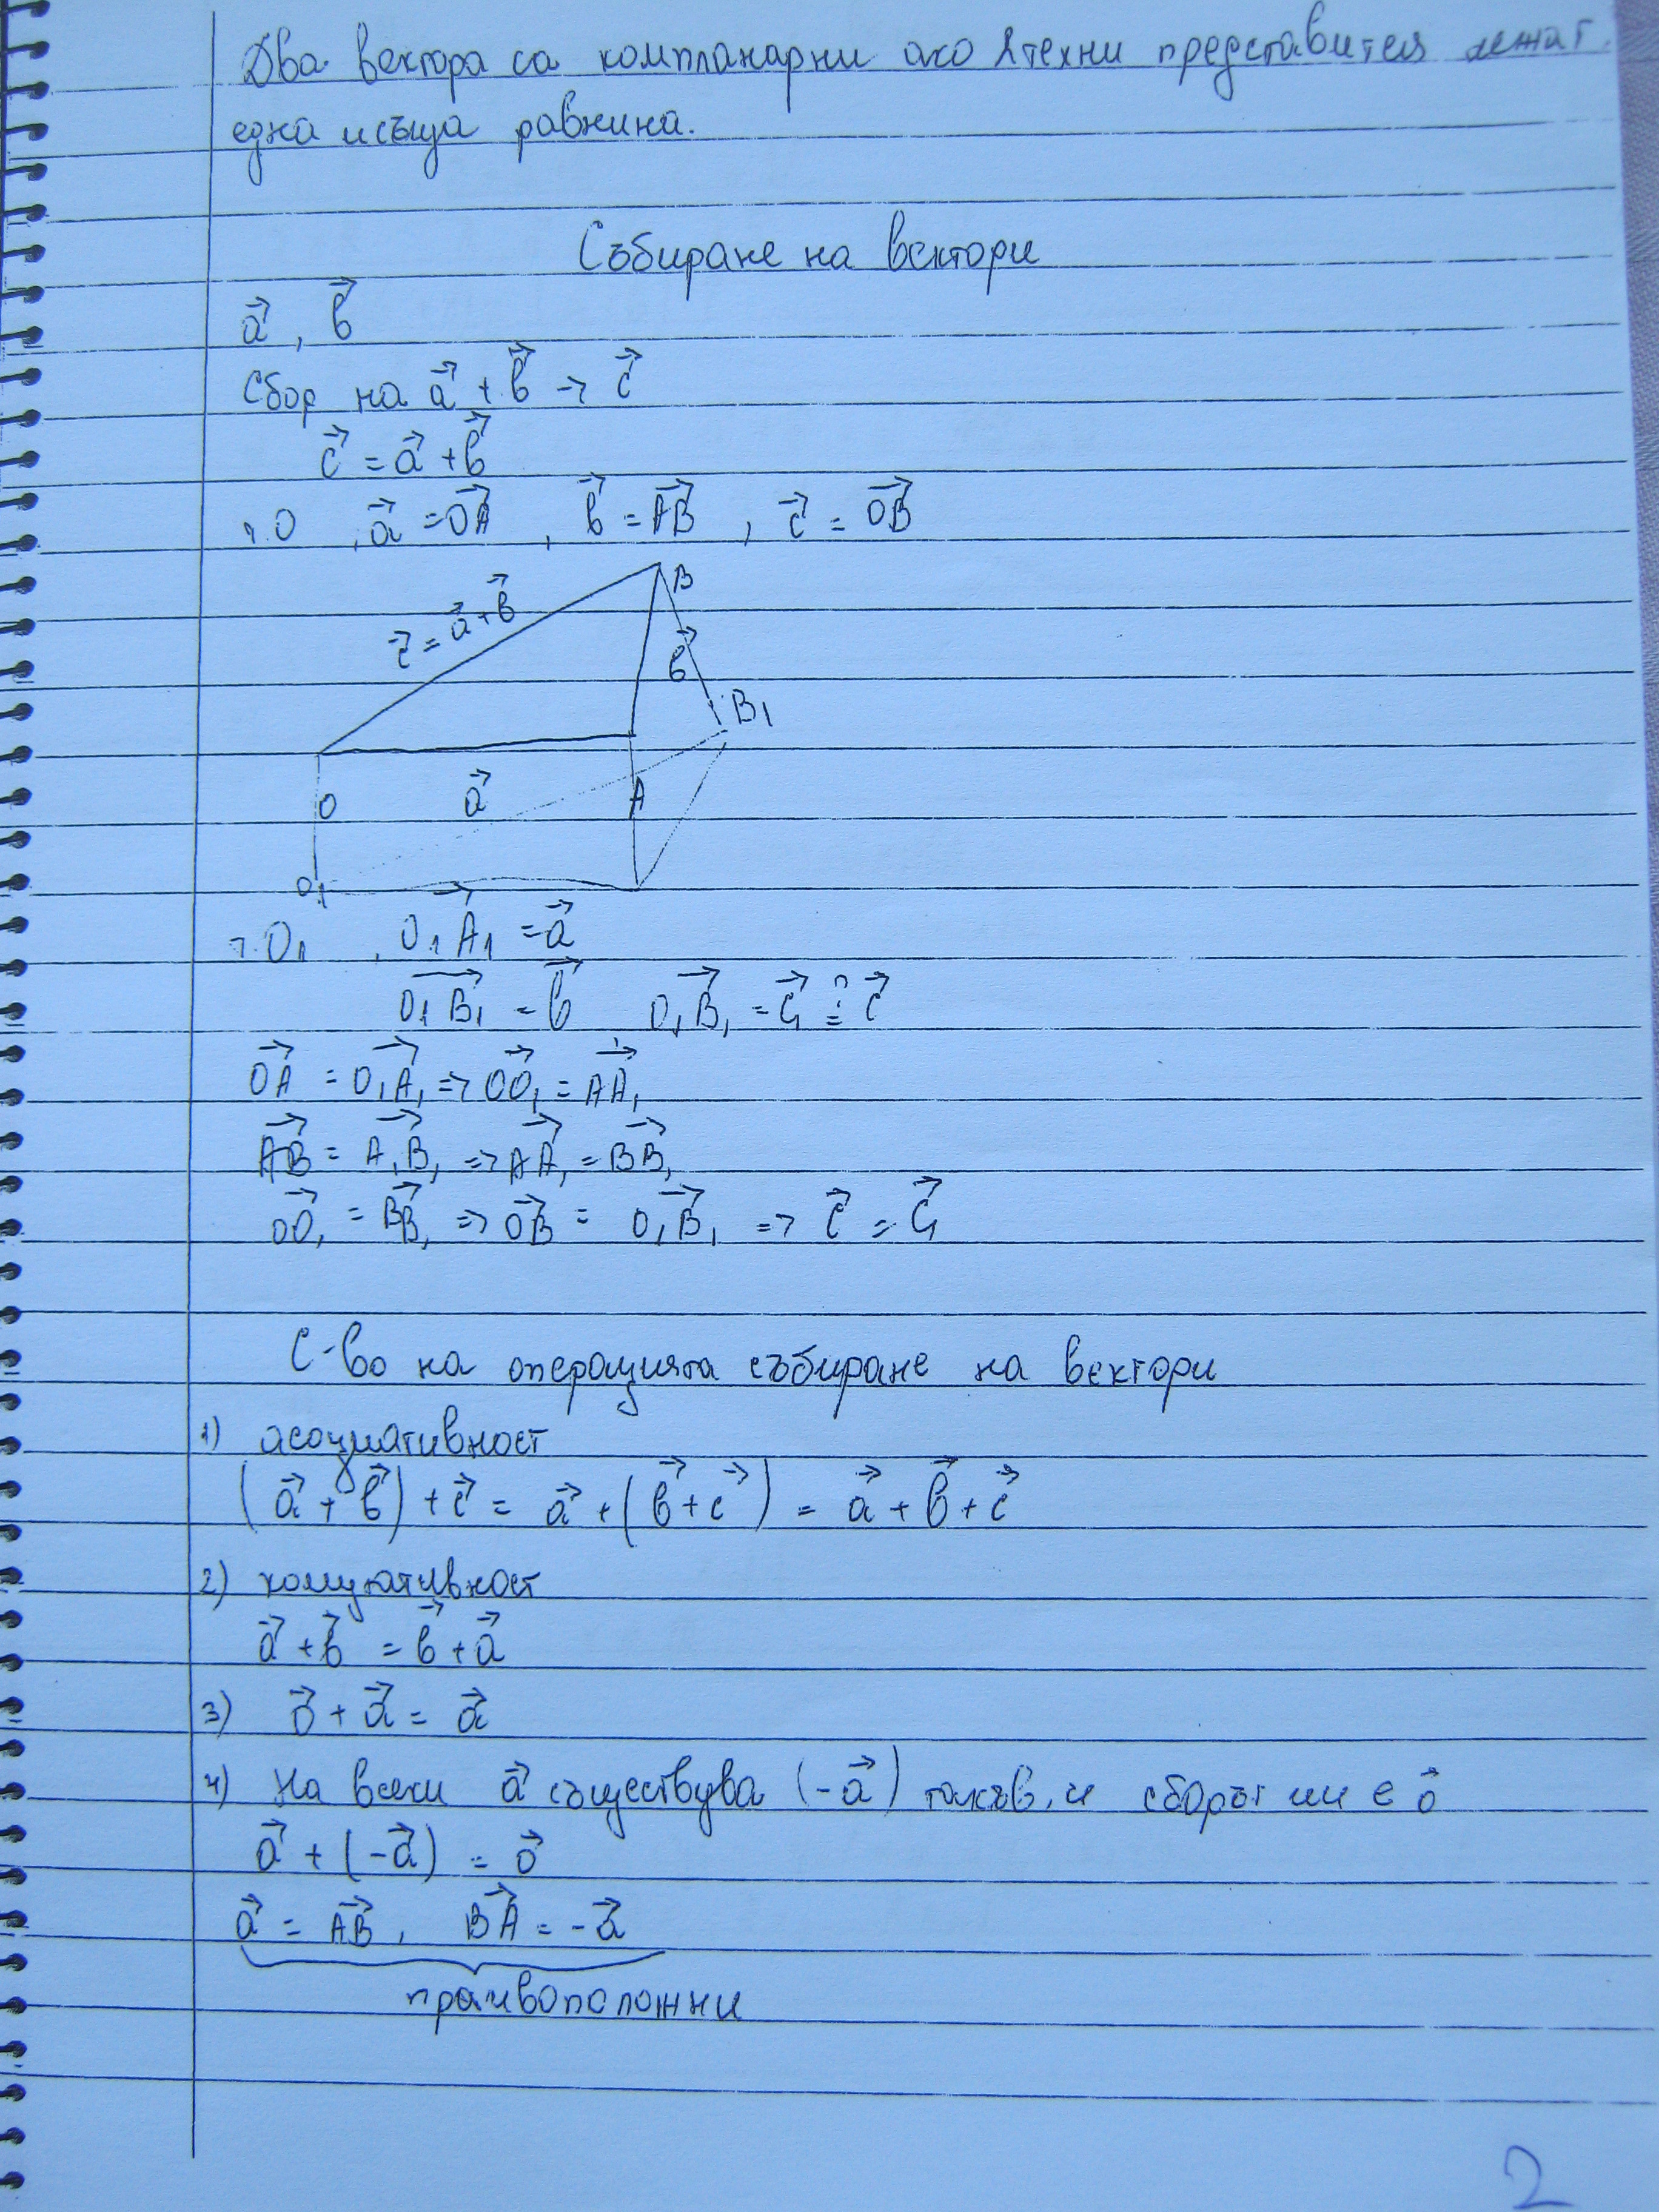 Два вектора са компланарни ако 2 техни представителя лежат
една и съща равнина.
Събиране на вектори
a⃗ , b⃗
Сбор на a⃗ + b⃗ → c⃗
c⃗ = a⃗ + b⃗
т.O , a⃗ = OA⃗ , b⃗ = AB⃗ , c⃗ = OB⃗
B
c⃗ = a⃗ + b⃗
b⃗
B₁
O a⃗ A
O₁
т.O₁ , O₁A₁⃗ = a⃗
O₁B₁⃗ = b⃗ O₁B₁⃗ = c₁⃗ ≟ c⃗
OA⃗ = O₁A₁⃗ => OO₁⃗ = AA₁⃗
AB⃗ = A₁B₁⃗ => AA₁⃗ = BB₁⃗
OO₁⃗ = BB₁⃗ => OB⃗ = O₁B₁⃗ => c⃗ = c₁⃗
С-во на операцията събиране на вектори
1) асоциативност
(a⃗ + b⃗) + c⃗ = a⃗ + (b⃗ + c⃗) = a⃗ + b⃗ + c⃗
2) комутативност
a⃗ + b⃗ = b⃗ + a⃗
3) o⃗ + a⃗ = a⃗
4) На всеки a⃗ съществува (-a⃗) такъв, и сборът им е o⃗
a⃗ + (-a⃗) = o⃗
a⃗ = AB⃗ , BA⃗ = -a⃗
противоположни
2